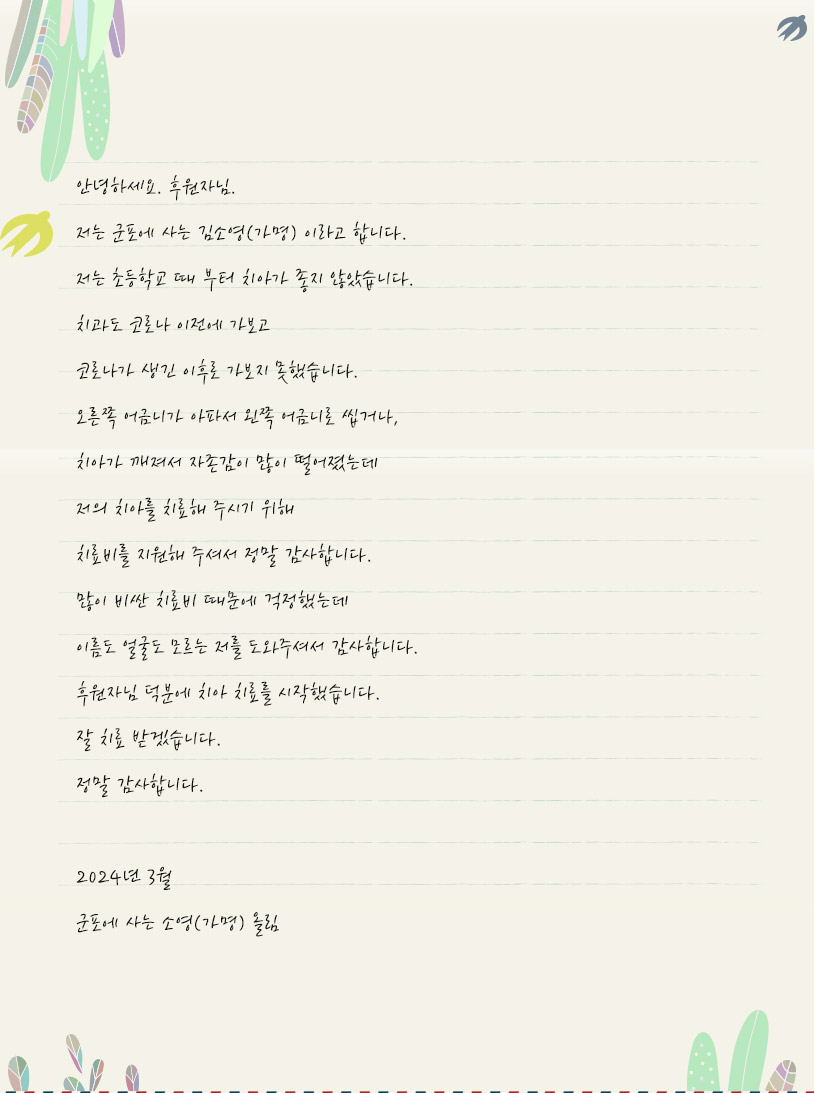 안녕하세요. 후원자님.
저는 군포에 사는 김소영(가명) 이라고 합니다.
저는 초등학교 때 부터 치아가 좋지 않았습니다.
치과도 코로나 이전에 가보고
코로나가 생긴 이후로 가보지 못했습니다.
오른쪽 어금니가 아파서 왼쪽 어금니로 씹거나,
치아가 깨져서 자존감이 많이 떨어졌는데
저의 치아를 치료해 주시기 위해
치료비를 지원해 주셔서 정말 감사합니다.
많이 비싼 치료비 때문에 걱정했는데
이름도 얼굴도 모르는 저를 도와주셔서 감사합니다.
후원자님 덕분에 치아 치료를 시작했습니다.
잘 치료 받겠습니다.
정말 감사합니다.
2024년 3월
군포에 사는 소영(가명) 올림